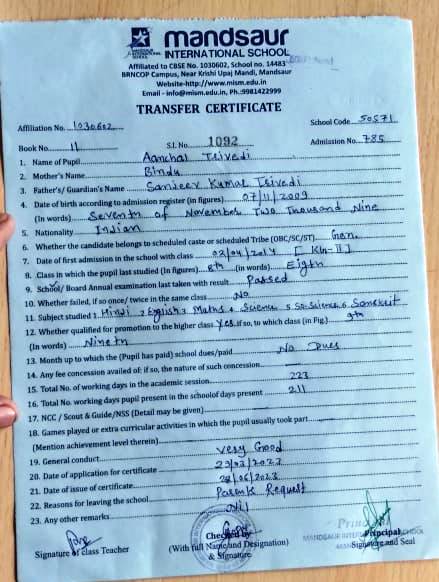 mandsaur
INTERNATIONAL SCHOOL
Affiliated to CBSE No. 1030602, School no. 14483
BRNCOP Campus, Near Krishi Upaj Mandi, Mandsaur
Website-http://www.mism.edu.in
Email - info@mism.edu.in, Ph.:9981422999
TRANSFER CERTIFICATE
Affiliation No. 1030602 School Code 50571
Book No. 11 S.I. No. 1092 Admission No. 785
1. Name of Pupil Aanchal Trivedi
2. Mother's Name Bindu
3. Father's/ Guardian's Name Sanjeev Kumar Trivedi
4. Date of birth according to admission register (in figures) 07/11/2009
(In words) Seventh of November Two Thousand Nine
5. Nationality Indian
6. Whether the candidate belongs to scheduled caste or scheduled Tribe (OBC/SC/ST) Gen.
7. Date of first admission in the school with class 02/04/2014 [KG-II]
8. Class in which the pupil last studied (In figures) 8th (in words) Eigth
9. School/ Board Annual examination last taken with result Passed
10. Whether failed, if so once/ twice in the same class No
11. Subject studied 1. Hindi 2 English 3 Maths 4 Science 5 So. Science 6 Sanskrit
12. Whether qualified for promotion to the higher class Yes if so, to which class (in Fig.) 9th
(In words) Nineth
13. Month up to which the (Pupil has paid) school dues/paid No Dues
14. Any fee concession availed of: if so, the nature of such concession
15. Total No. of working days in the academic session 223
16. Total No. working days pupil present in the schoolof days present 211
17. NCC / Scout & Guide/NSS (Detail may be given)
18. Games played or extra curricular activities in which the pupil usually took part
(Mention achievement level therein)
19. General conduct very Good
20. Date of application for certificate
21. Date of issue of certificate
22. Reasons for leaving the school Parents Request
23. Any other remarks Nil
Signature of class Teacher
Checked by
(With full Name and Designation)
& Signature
Principal
Signature and Seal